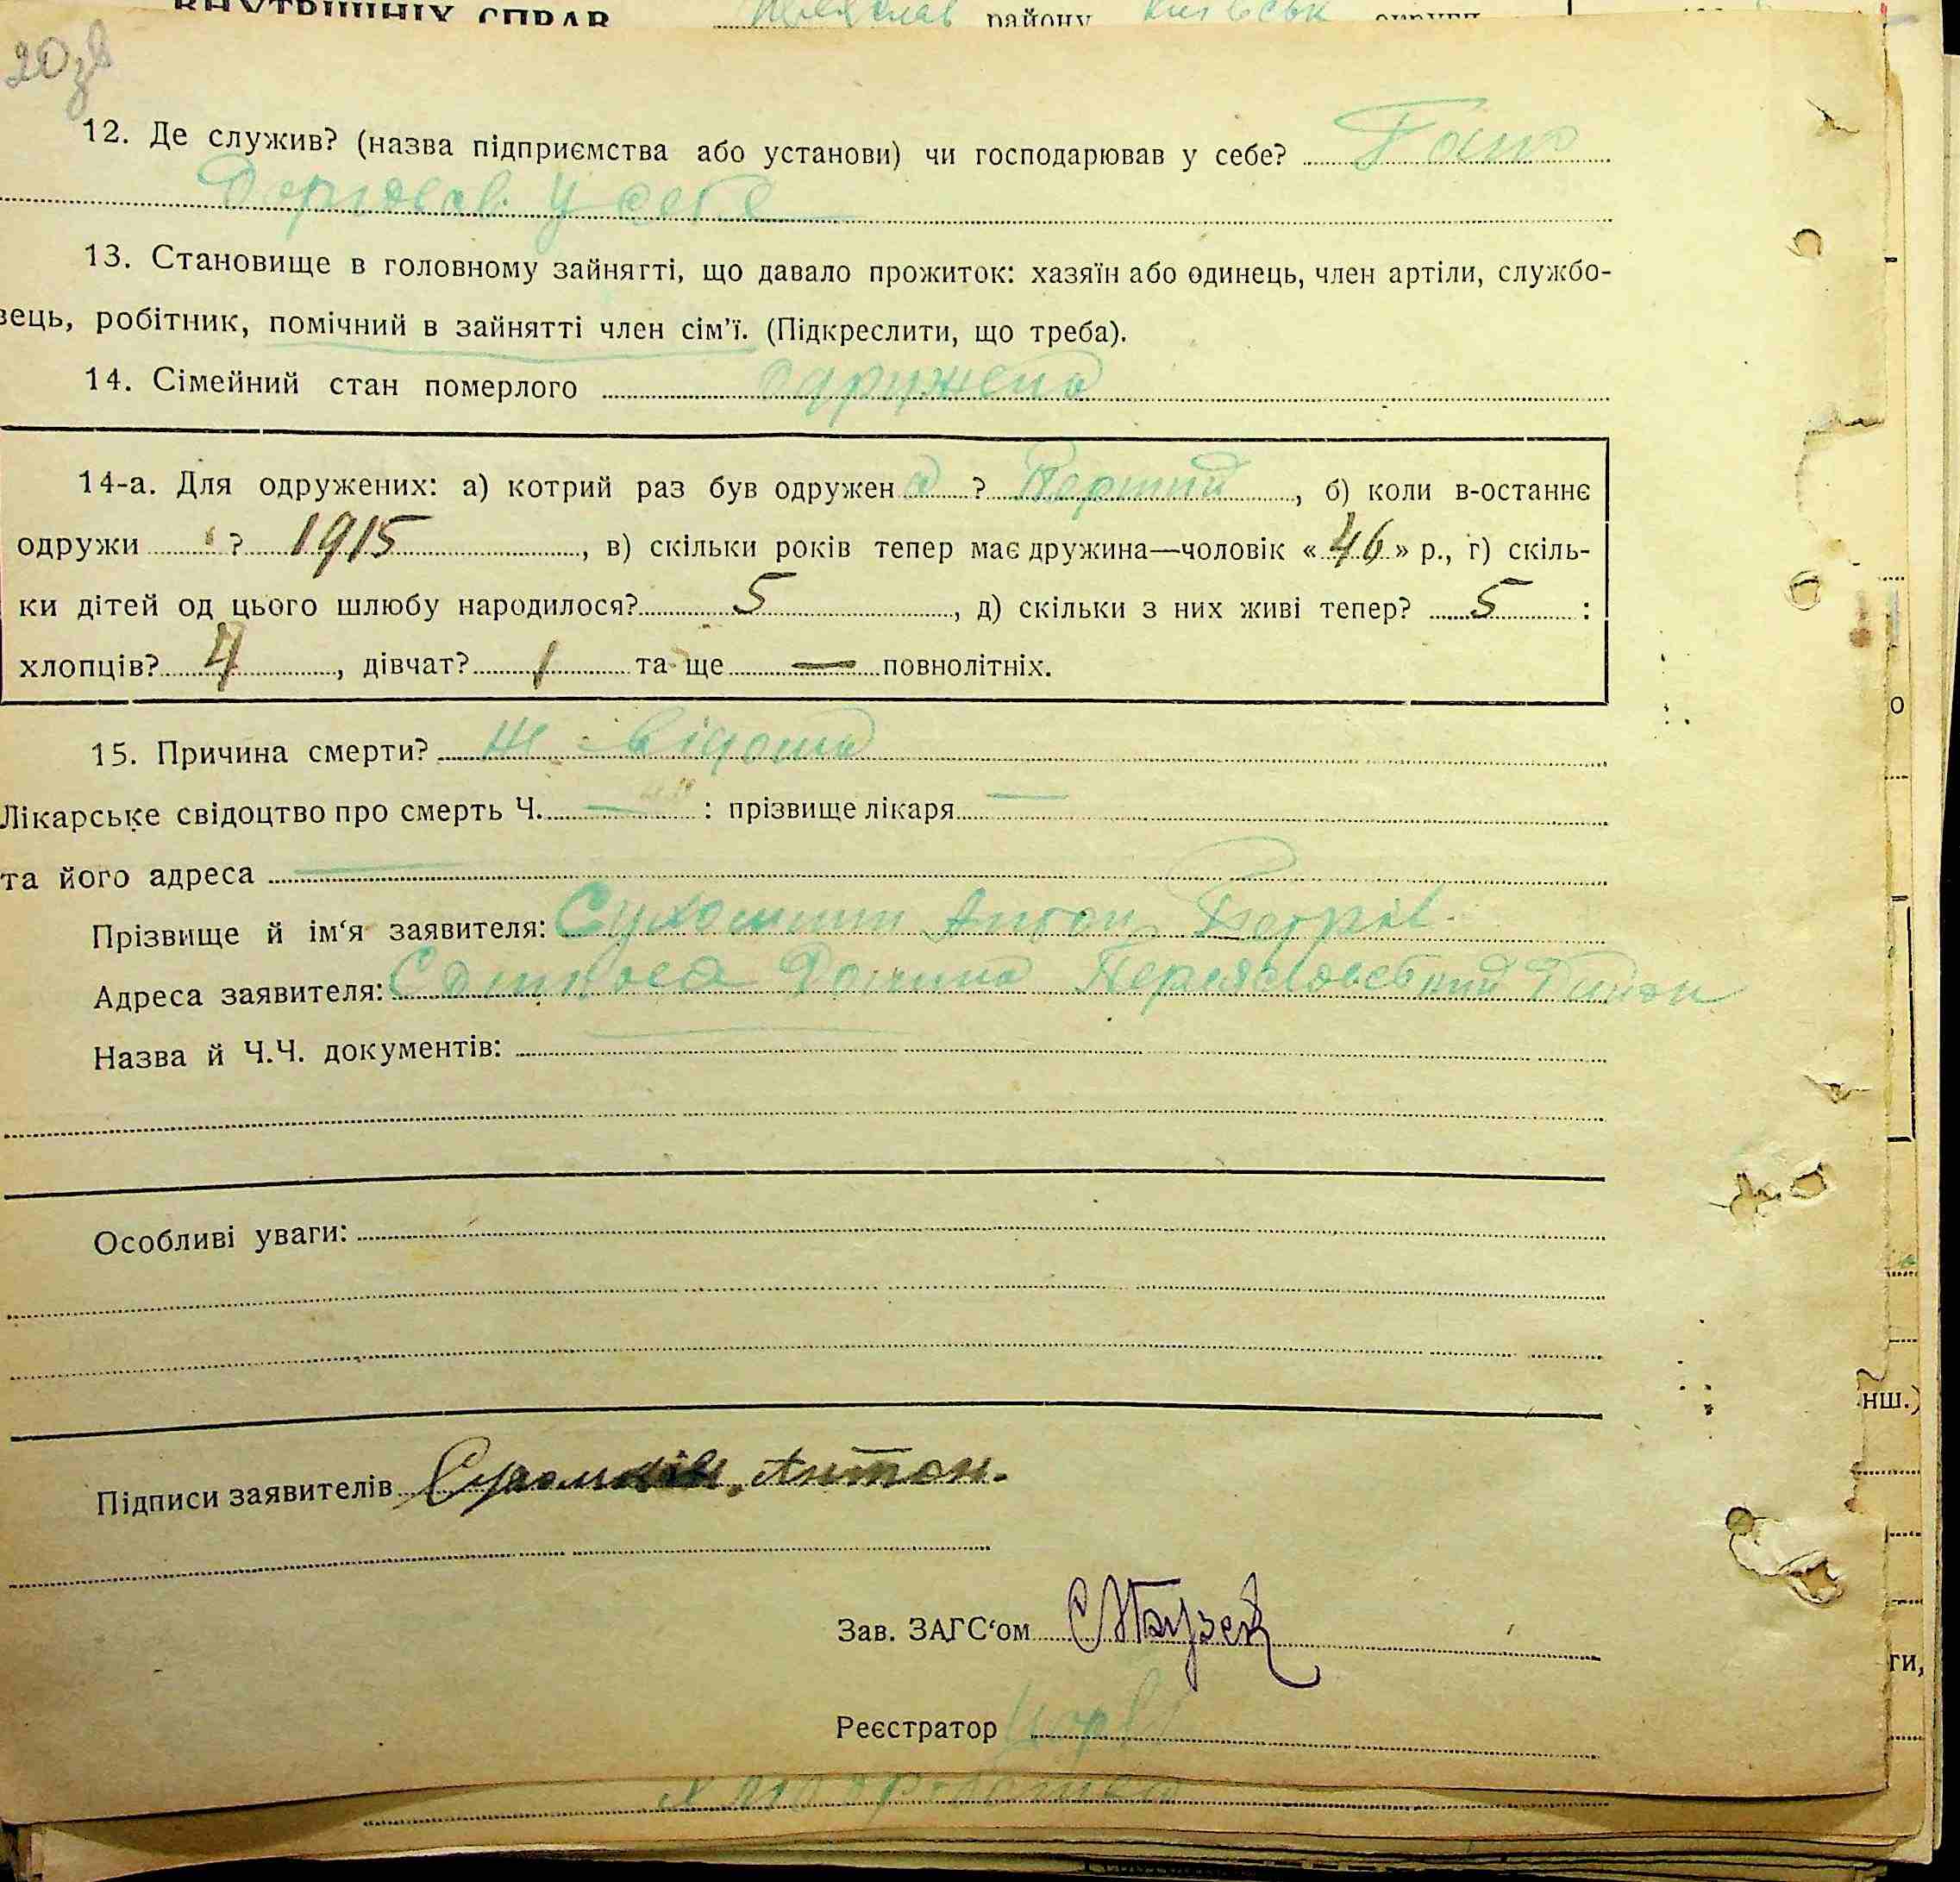 ВНУТРІШНІХ СПРАВ району округи
20зв
12. Де служив? (назва підприємства або установи) чи господарював у себе? Госпо
дарював у себе
13. Становище в головному зайнятті, що давало прожиток: хазяїн або одинець, член артіли, службо-
вець, робітник, помічний в зайнятті член сім'ї. (Підкреслити, що треба).
14. Сімейний стан померлого одружена
14-а. Для одружених: а) котрий раз був одружен а ? Перший, б) коли в-останнє
одружи ? 1915, в) скільки років тепер має дружина—чоловік « 46 » р., г) скіль-
ки дітей од цього шлюбу народилося? 5, д) скільки з них живі тепер? 5 :
хлопців? 4, дівчат? 1 та ще — повнолітніх.
15. Причина смерти? не відома
Лікарське свідоцтво про смерть Ч. — : прізвище лікаря —
та його адреса —
Прізвище й ім‘я заявителя: Сухомлин Антон Петрів.
Адреса заявителя: Переяславський Район
Назва й Ч.Ч. документів:
Особливі уваги:
Підписи заявителів Сухомлин. Антон.
Зав. ЗАГС‘ом
Реєстратор
о
нш.)
ти,